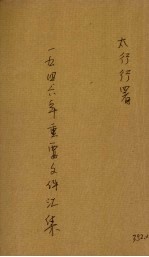 太行行署
一九四六年重要文件汇集